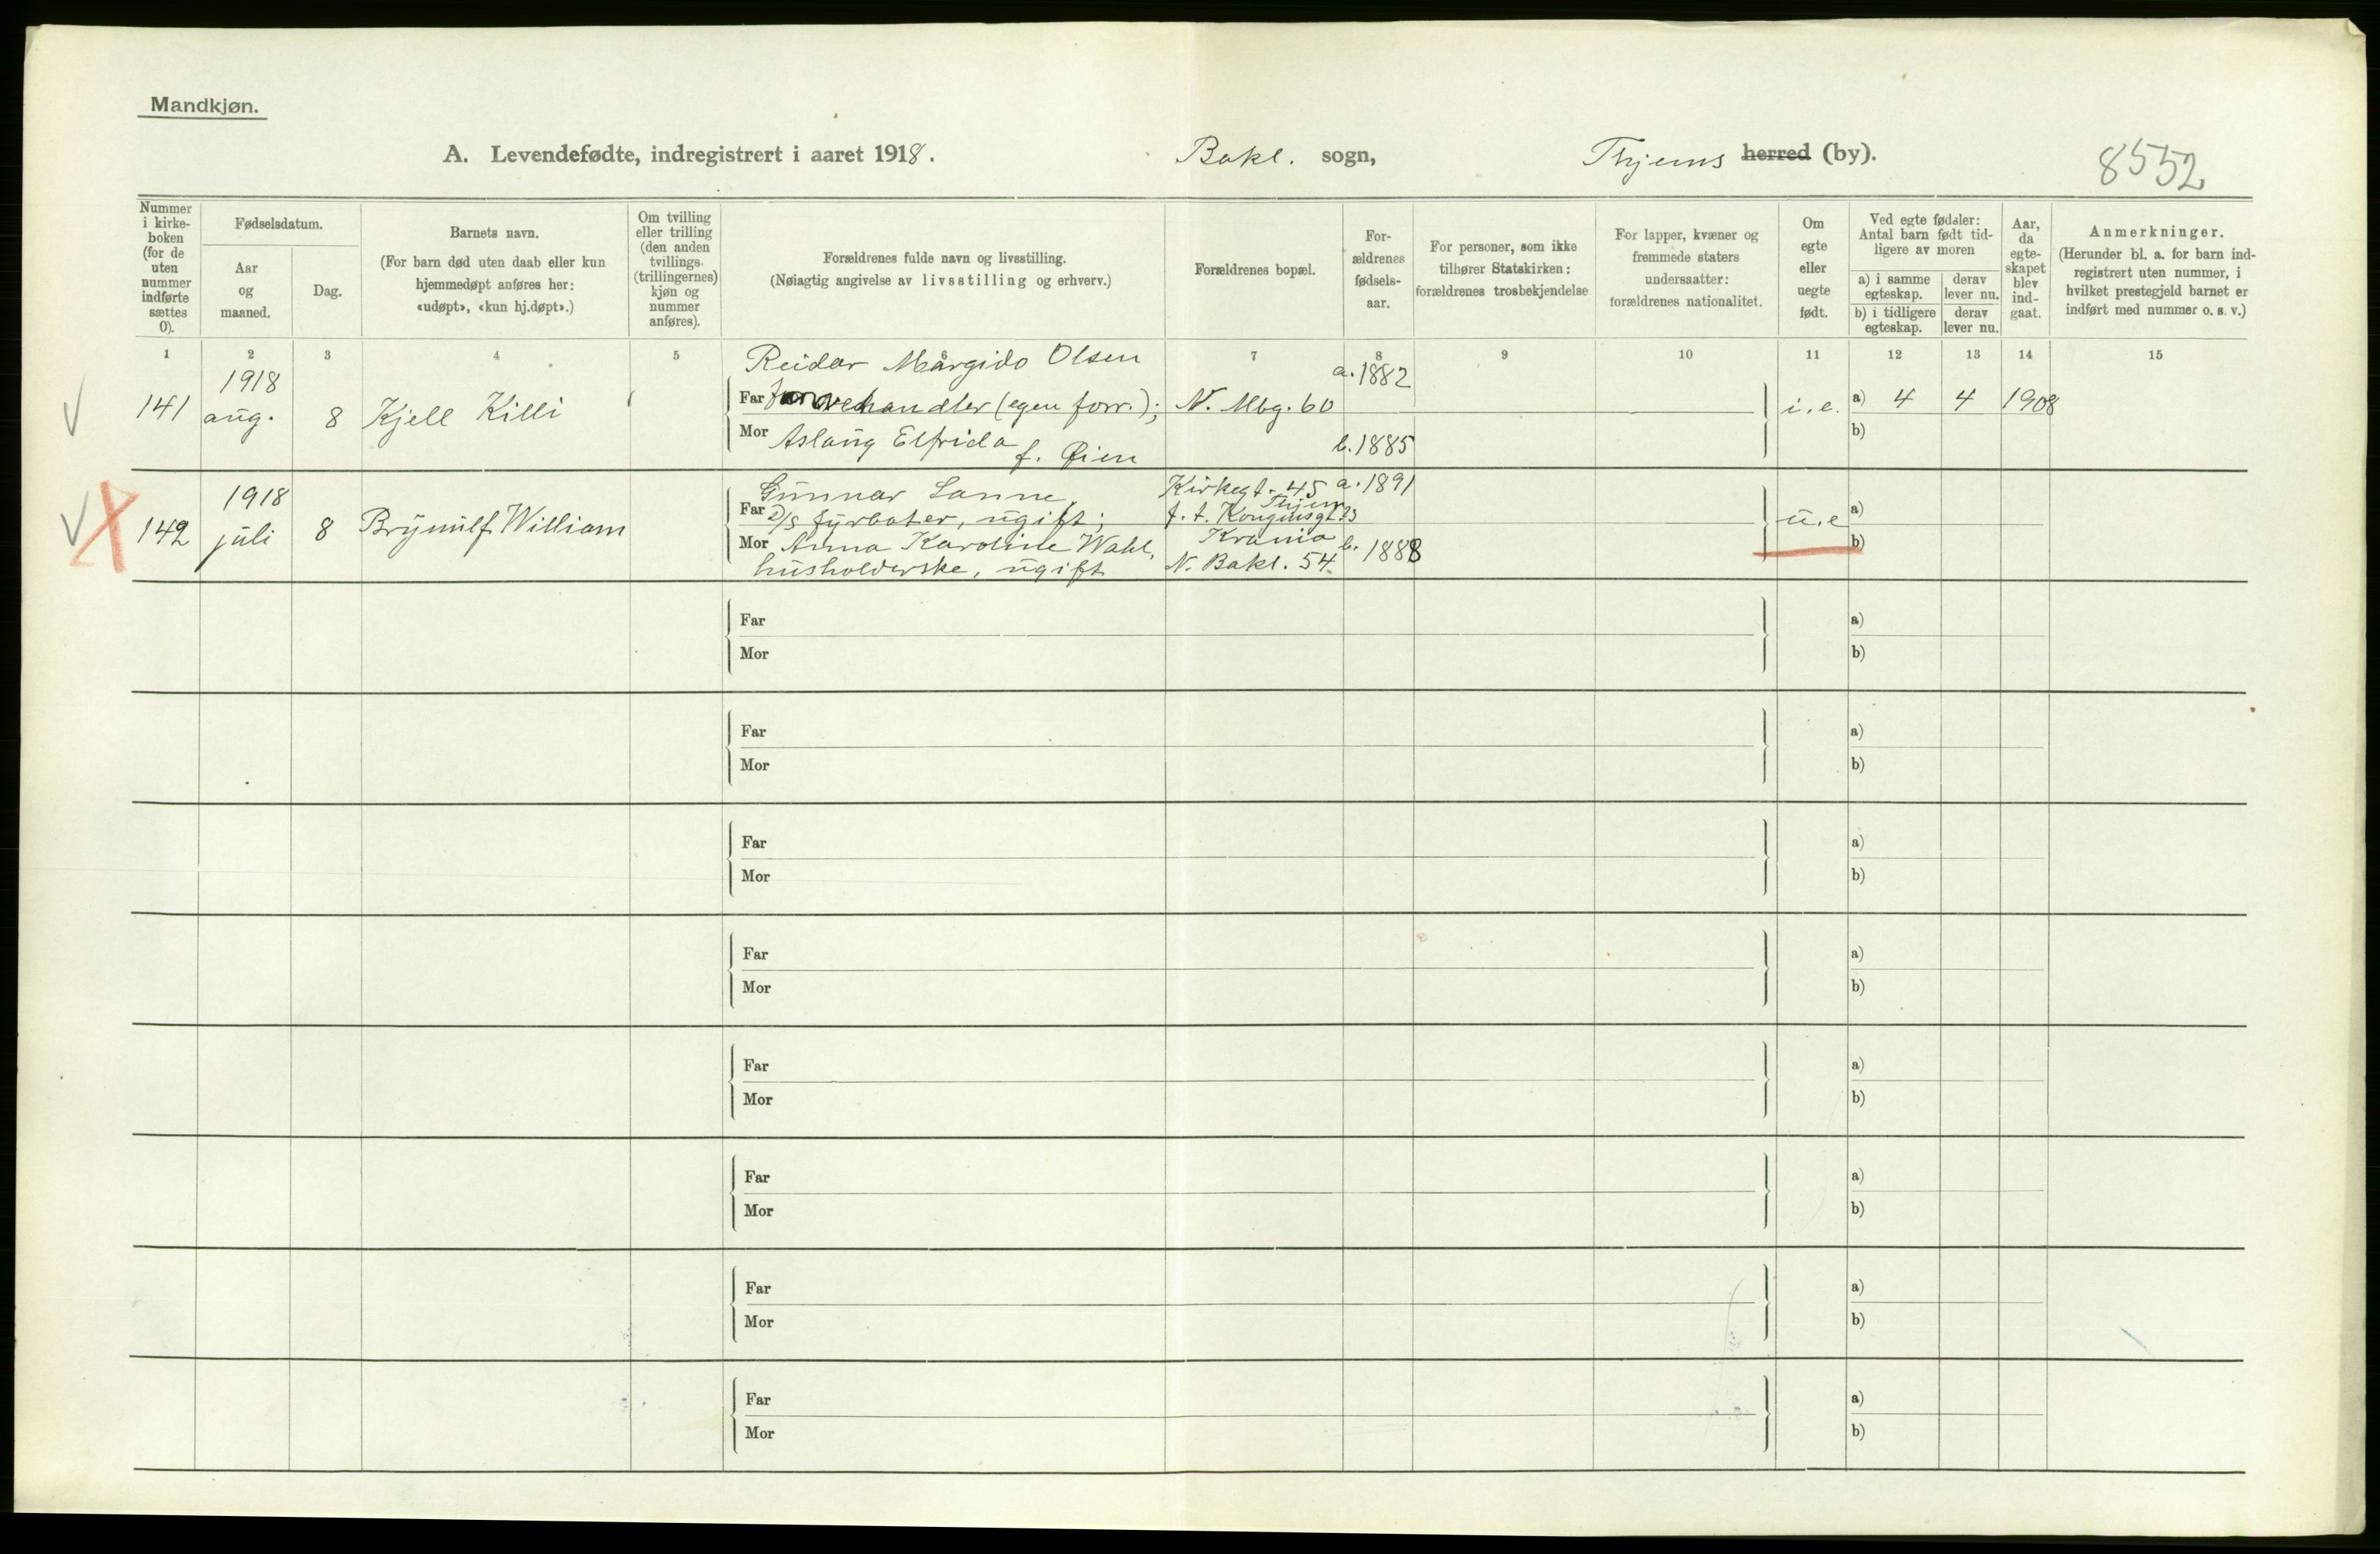 Mandkjøn.
A. Levendefødte, indregistrert i aaret 1918. Bakl. sogn, Thjems herred (by). 8552
Nummer i kirke-boken (for de uten nummer indførte sættes 0).
Fødselsdatum.
Aar og maaned.
Dag.
Barnets navn.
(For barn død uten daab eller kun hjemmedøpt anføres her: «udøpt», «kun hj.døpt».)
Om tvilling eller trilling (den anden tvillings (trillingernes) kjøn og nummer anføres).
Forældrenes fulde navn og livsstilling.
(Nøiagtig angivelse av livsstilling og erhverv.)
Forældrenes bopæl.
For-ældrenes fødsels-aar.
For personer, som ikke tilhører Statskirken: forældrenes trosbekjendelse
For lapper, kvæner og fremmede staters undersaatter: forældrenes nationalitet.
Om egte eller uegte født.
Ved egte fødsler: Antal barn født tid-ligere av moren
a) i samme egteskap.
derav lever nu.
b) i tidligere egteskap.
derav lever nu.
Aar, da egte-skapet blev ind-gaat.
Anmerkninger.
(Herunder bl. a. for barn ind-registrert uten nummer, i hvilket prestegjeld barnet er indført med nummer o. s. v.)
1 2 3 4 5 6 7 8 9 10 11 12 13 14 15
Reidar Margido Olsen a. 1882
141 1918 aug. 8 Kjell Killi Far handler (egen forr.); N. Mbg. 60 i. e. a) 4 4 1908
Mor Aslaug Elfrida f. Øien b. 1885 b)
Gunnar Lanne, Kirkegt. 45 a. 1891
Thjem
142 1918 juli 8 Brynulf William Far D/S fyrbøter, ugift; f. t. Kongensgt. 23 u. e. a)
Mor Anna Karoline Wahl, Krania b. 1888 b)
husholderske, ugift N. Bakl. 54.
Far a)
Mor b)
Far a)
Mor b)
Far a)
Mor b)
Far a)
Mor b)
Far a)
Mor b)
Far a)
Mor b)
Far a)
Mor b)
Far a)
Mor b)